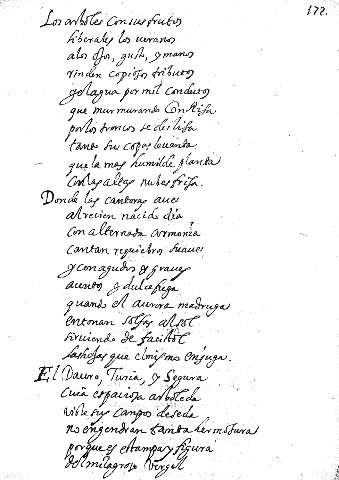 172.
Los arboles con sus frutos
liberales los veranos
a los ojos, gusto, y manos
rinden copiosos tributos
y el agua por mil condutos
que murmurando con risa
por los troncos se desliza
tanto sus copas leuanta
que la mas humilde planta
con las altas nubes frisa.
Donde las cantoras aues
al recien nacido dia
con alternada armonia
cantan requiebros suaues
y con agudos y graues
acentos y dulce fuga
quando el aurora madruga
entonan solfas al sol
siruiendo de facistol
las hojas que el mismo enjuga.
El Dauro, Turia, y Segura
cuia espaciosa arboleda
viste sus campos de seda
no engendran tanta hermosura
porque es estampa y figura
del milagroso vergel